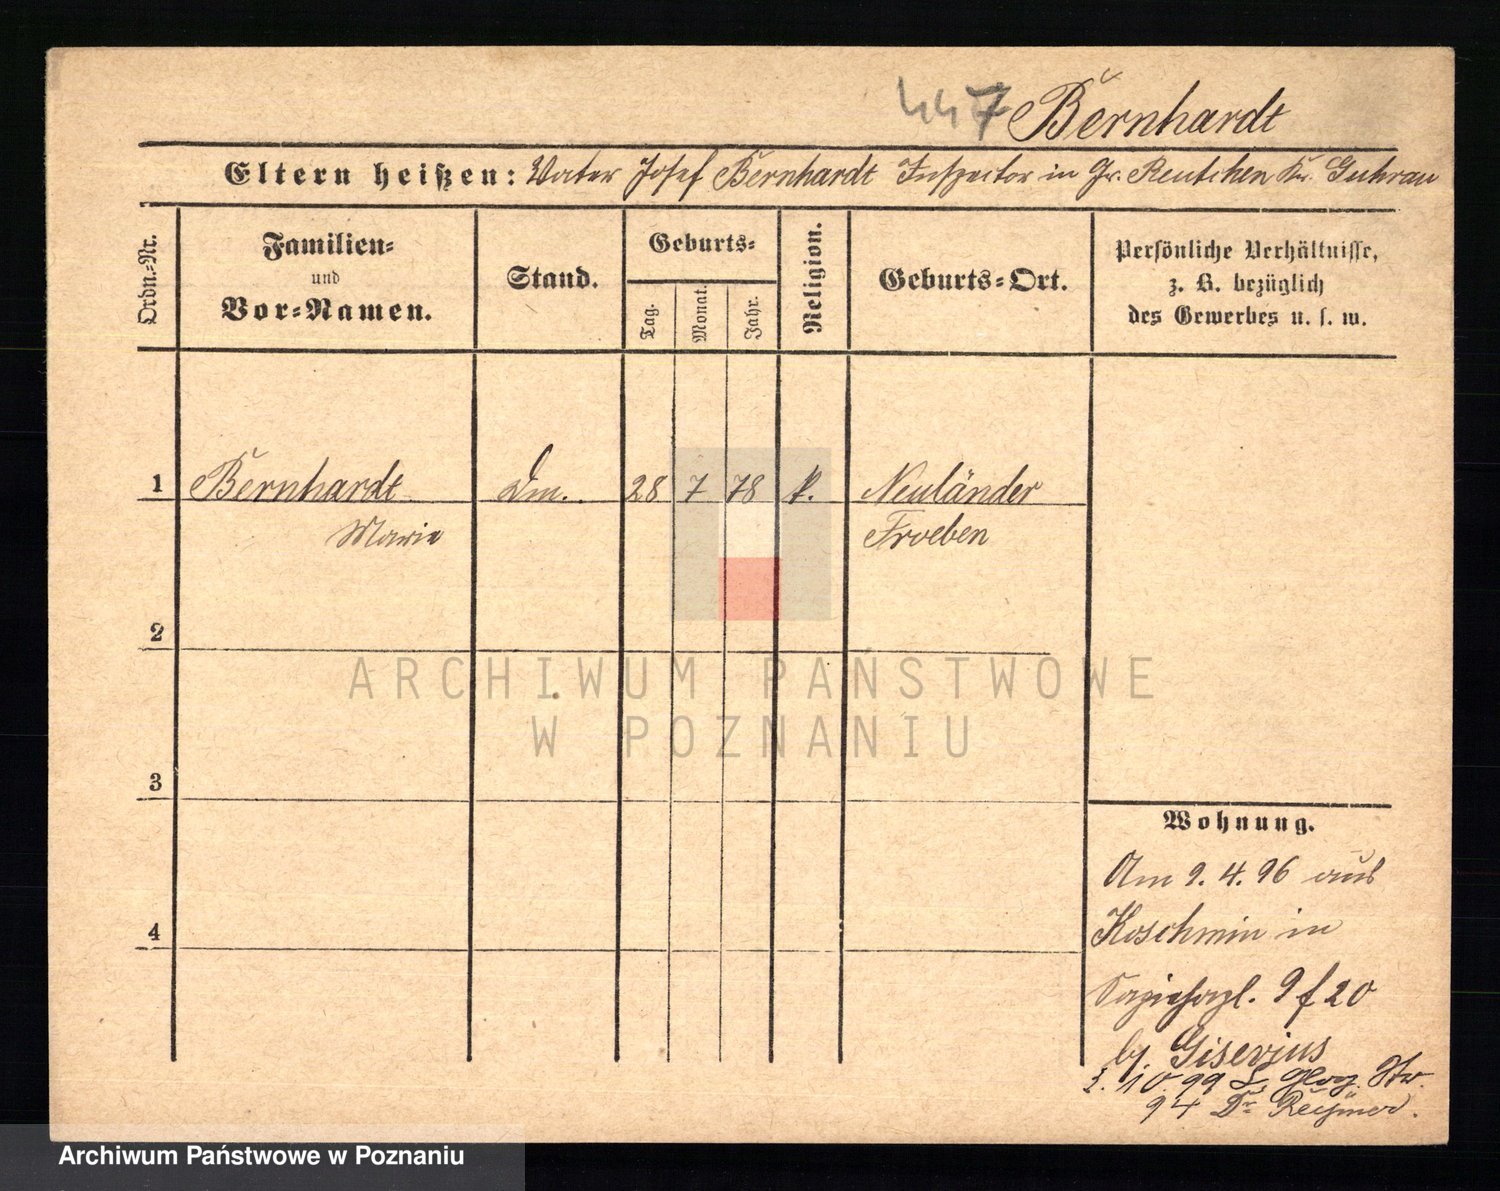 447 Bernhardt
Eltern heißen: Vater Josef Bernhardt Inspector in Gr. Reutchen Kr. Guhrau
Ordn.-Nr.
Familien- und Vor-Namen.
Stand.
Geburts-
Tag.
Monat.
Jahr.
Religion.
Geburts-Ort.
Persönliche Verhältnisse,
z. B. bezüglich
des Gewerbes u. s. w.
1 Bernhardt Dm. 28 7 78 k. Neuländer
Marie Froeben
2
3
4
ARCHIWUM PAŃSTWOWE
W POZNANIU
Wohnung.
Am 9. 4. 96 aus
Koschmin in
9 f 20
bj. Gisevius
10. 99 Glog. Str.
94 Dr.
Archiwum Państwowe w Poznaniu